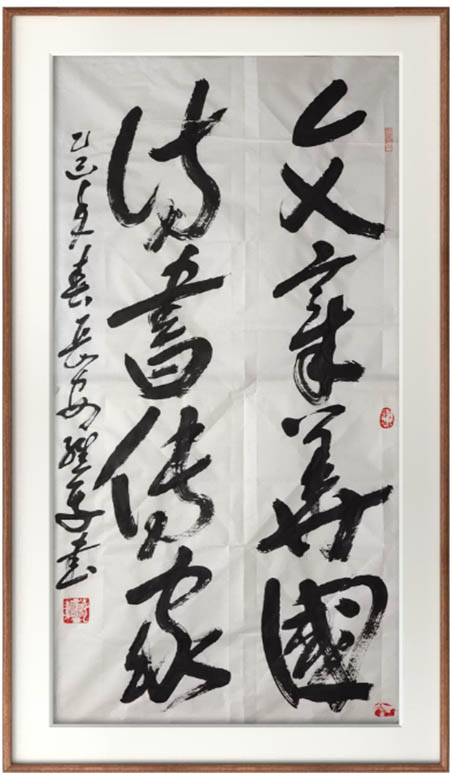 文章華國
詩書傳家
乙巳春長安書